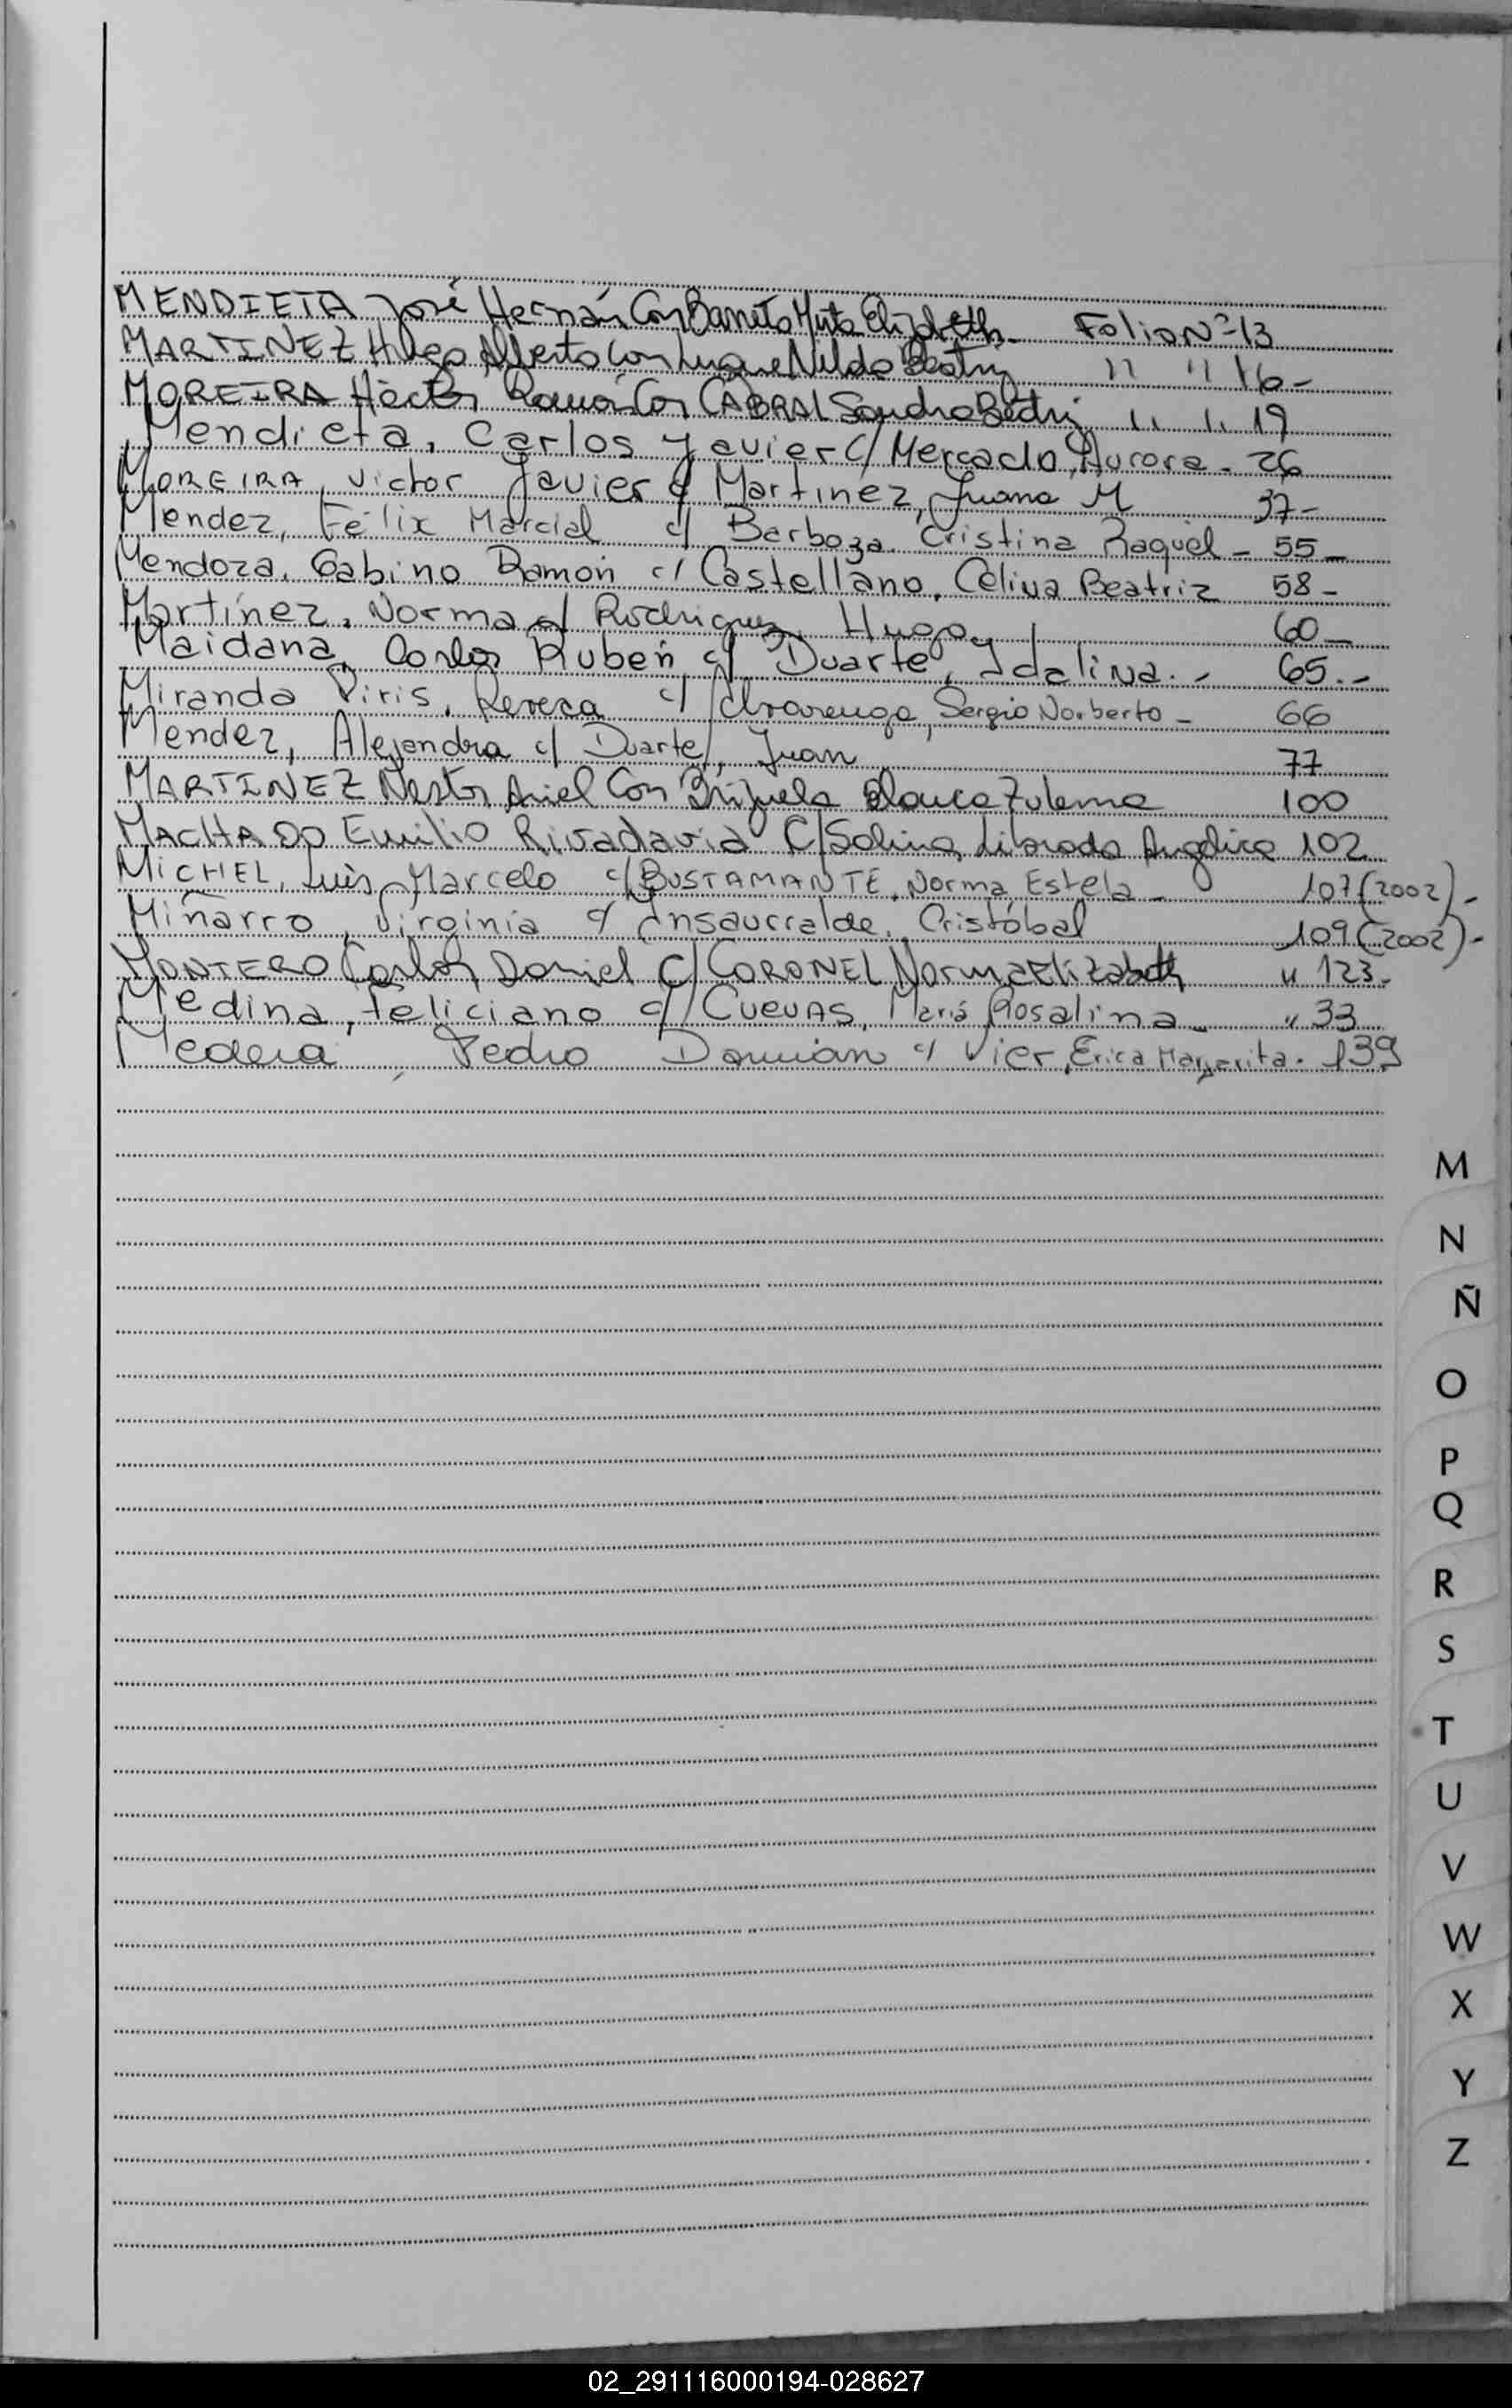 MENDIETA José Hernán Con Barreto Mirta Elizabeth - Folio Nº 13
MARTINEZ Hugo Alberto Con Luque Nilda Beatriz " " 16-
MOREIRA Héctor Ramón Con CABRAL Sandra Beatriz " " 19
Mendieta, Carlos Javier c/ Mercado, Aurora - 26
MOREIRA, Victor Javier c/ Martinez, Juana M 37-
Mendez, Félix Marcial c/ Barboza, Cristina Raquel - 55-
Mendoza, Gabino Ramón c/ Castellano, Celina Beatriz 58-
Martínez, Norma c/ Rodriguez, Hugo 60-
Maidana, Carlos Rubén c/ Duarte, Idalina.- 65.-
Miranda Piris, Rereca c/ Alvarenga, Sergio Norberto - 66
Mendez, Alejandra c/ Duarte, Juan 77
MARTINEZ Nestor Ariel Con Brizuela Blanca Zulema 100
MACHADO Emilio Rivadavia C/ Solina Librada Angélica 102
MICHEL, Luis Marcelo c/ BUSTAMANTE, Norma Estela - 107 (2002)-
Miñarro, Virginia c/ Insaurralde, Cristóbal 109 (2002)-
MONTERO Carlos Daniel C/ CORONEL Norma Elizabeth " 123-
Medina, Feliciano c/ CUEVAS, María Rosalina - " 33
Pedro Damian c/ Vier, Erica Margarita. 139
M
N
Ñ
O
P
Q
R
S
T
U
V
W
X
Y
Z
02_291116000194-028627